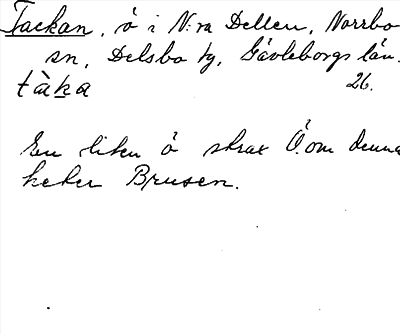 Tackan, ö i N:ra Dellen, Norrbo
sn, Delsbo tg, Gävleborgs län.
tàka 26.
En liten ö strax Ö. om denna
heter Brusen.